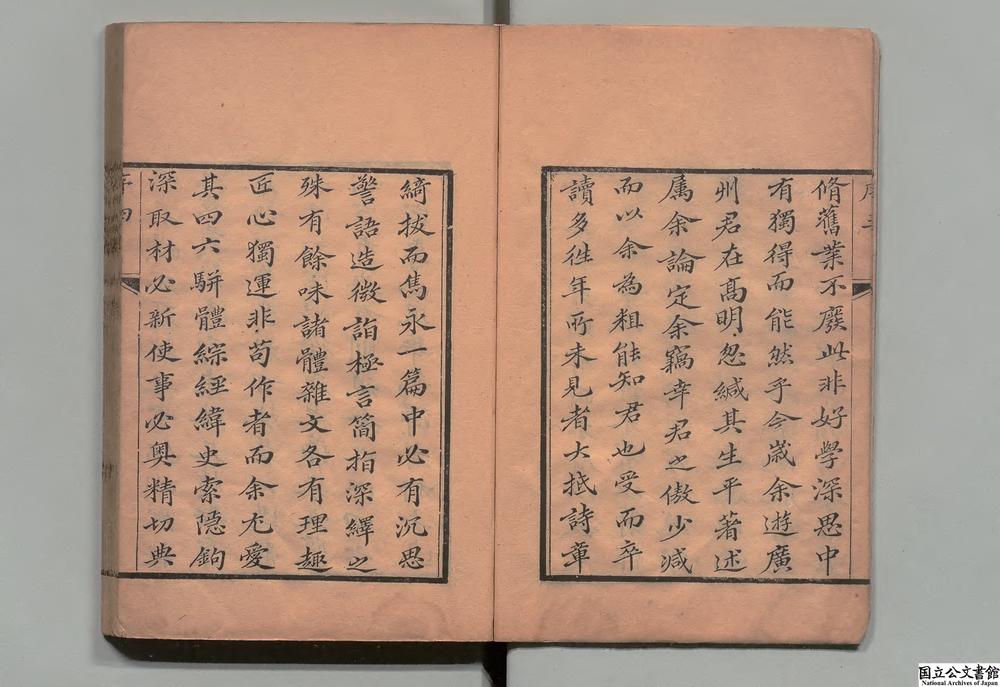 脩舊業不廢此非好學深思中
有獨得而能然乎今歲余遊廣
州君在髙明忽緘其生平著述
属余論定余竊幸君之傲少减
而以余為粗能知君也受而卒
讀多徃年所未見者大抵詩章
綺拔而雋永一篇中必有沉思
警語造微詣極言簡指深繹之
殊有餘味諸體雜文各有理趣
匠心獨運非苟作者而余尤愛
其四六駢體綜經緯史索隠鉤
深取材必新使事必奥精切典
序四
国立公文書館
National Archives of Japan